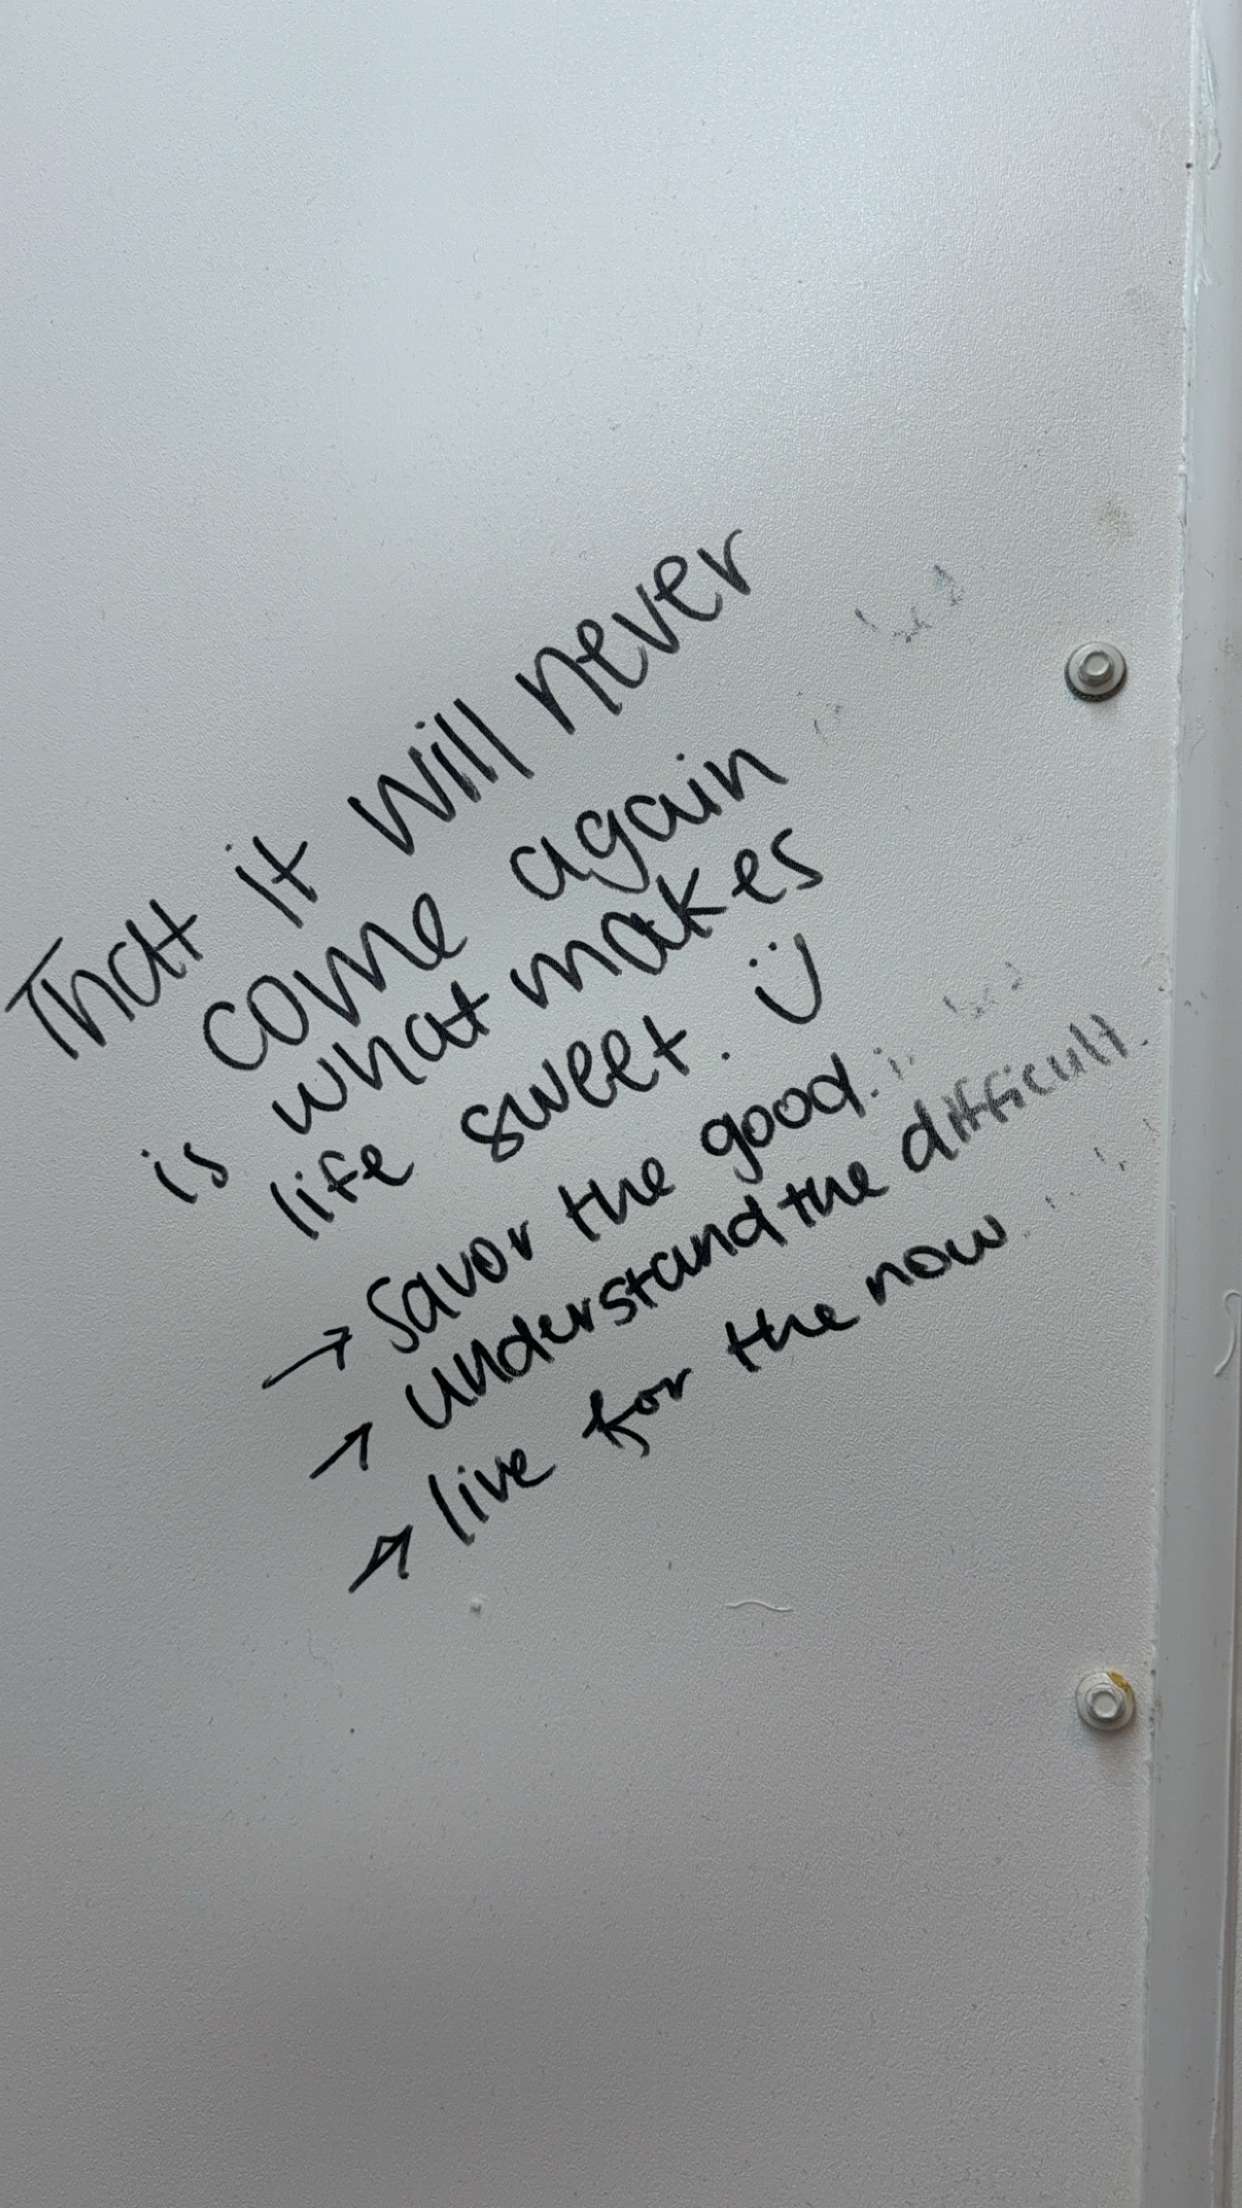 That it will never
come again
is what makes
life sweet. :)
→ savor the good.
→ understand the difficult.
→ live for the now